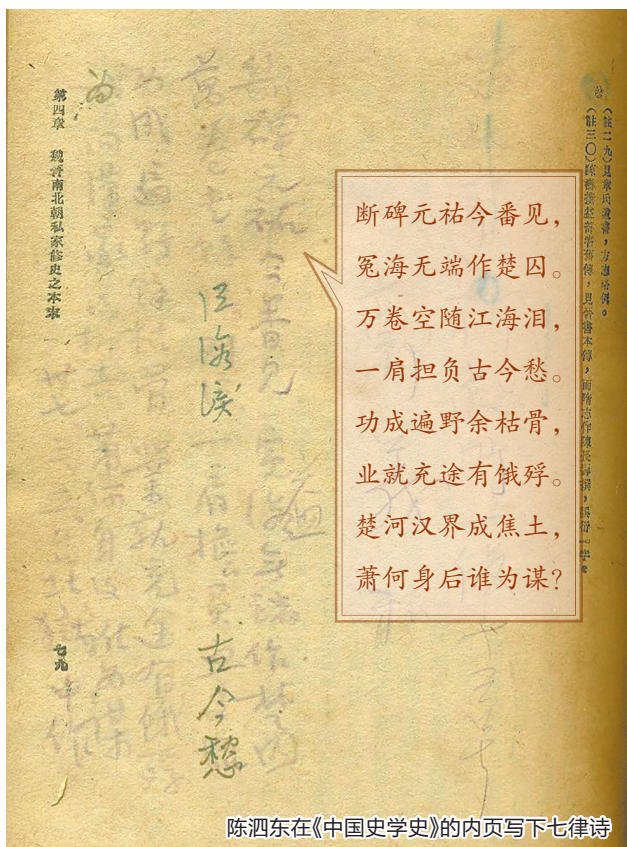 （註二九）見章氏遺書，方志略例。
（註三〇）陳壽撰益部耆舊傳，見於晉書本傳，而隋志作陳長壽撰，誤衍一字。
断碑元祐今番见，
冤海无端作楚囚。
万卷空随江海泪，
一肩担负古今愁。
功成遍野余枯骨，
业就充途有饿殍。
楚河汉界成焦土，
萧何身后谁为谋？
断碑元祐今番见 冤海无端作楚囚
江海淚 一肩担负 古今愁
功成遍野 枯骨 業就充途有饿殍
萧何身 为谋
廿七 獄中作
第四章 魏晉南北朝私家修史之本末
七九
陈泗东在《中国史学史》的内页写下七律诗